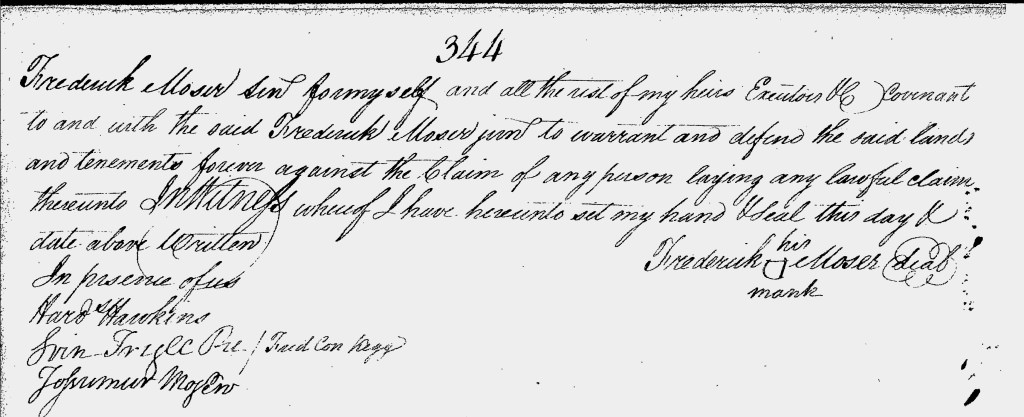 344
Frederick Moser senr for myself and all the rest of my heirs Executors &C Covenant
to and with the said Frederick Moser junr to warrant and defend the said lands
and tenements forever against the Claim of any person laying any lawful claim
thereunto In Witness whereof I have hereunto set my hand & Seal this day &
date above Written
Frederick his Moser Seal
mark
In presence of us
Hawkins
Fred Con